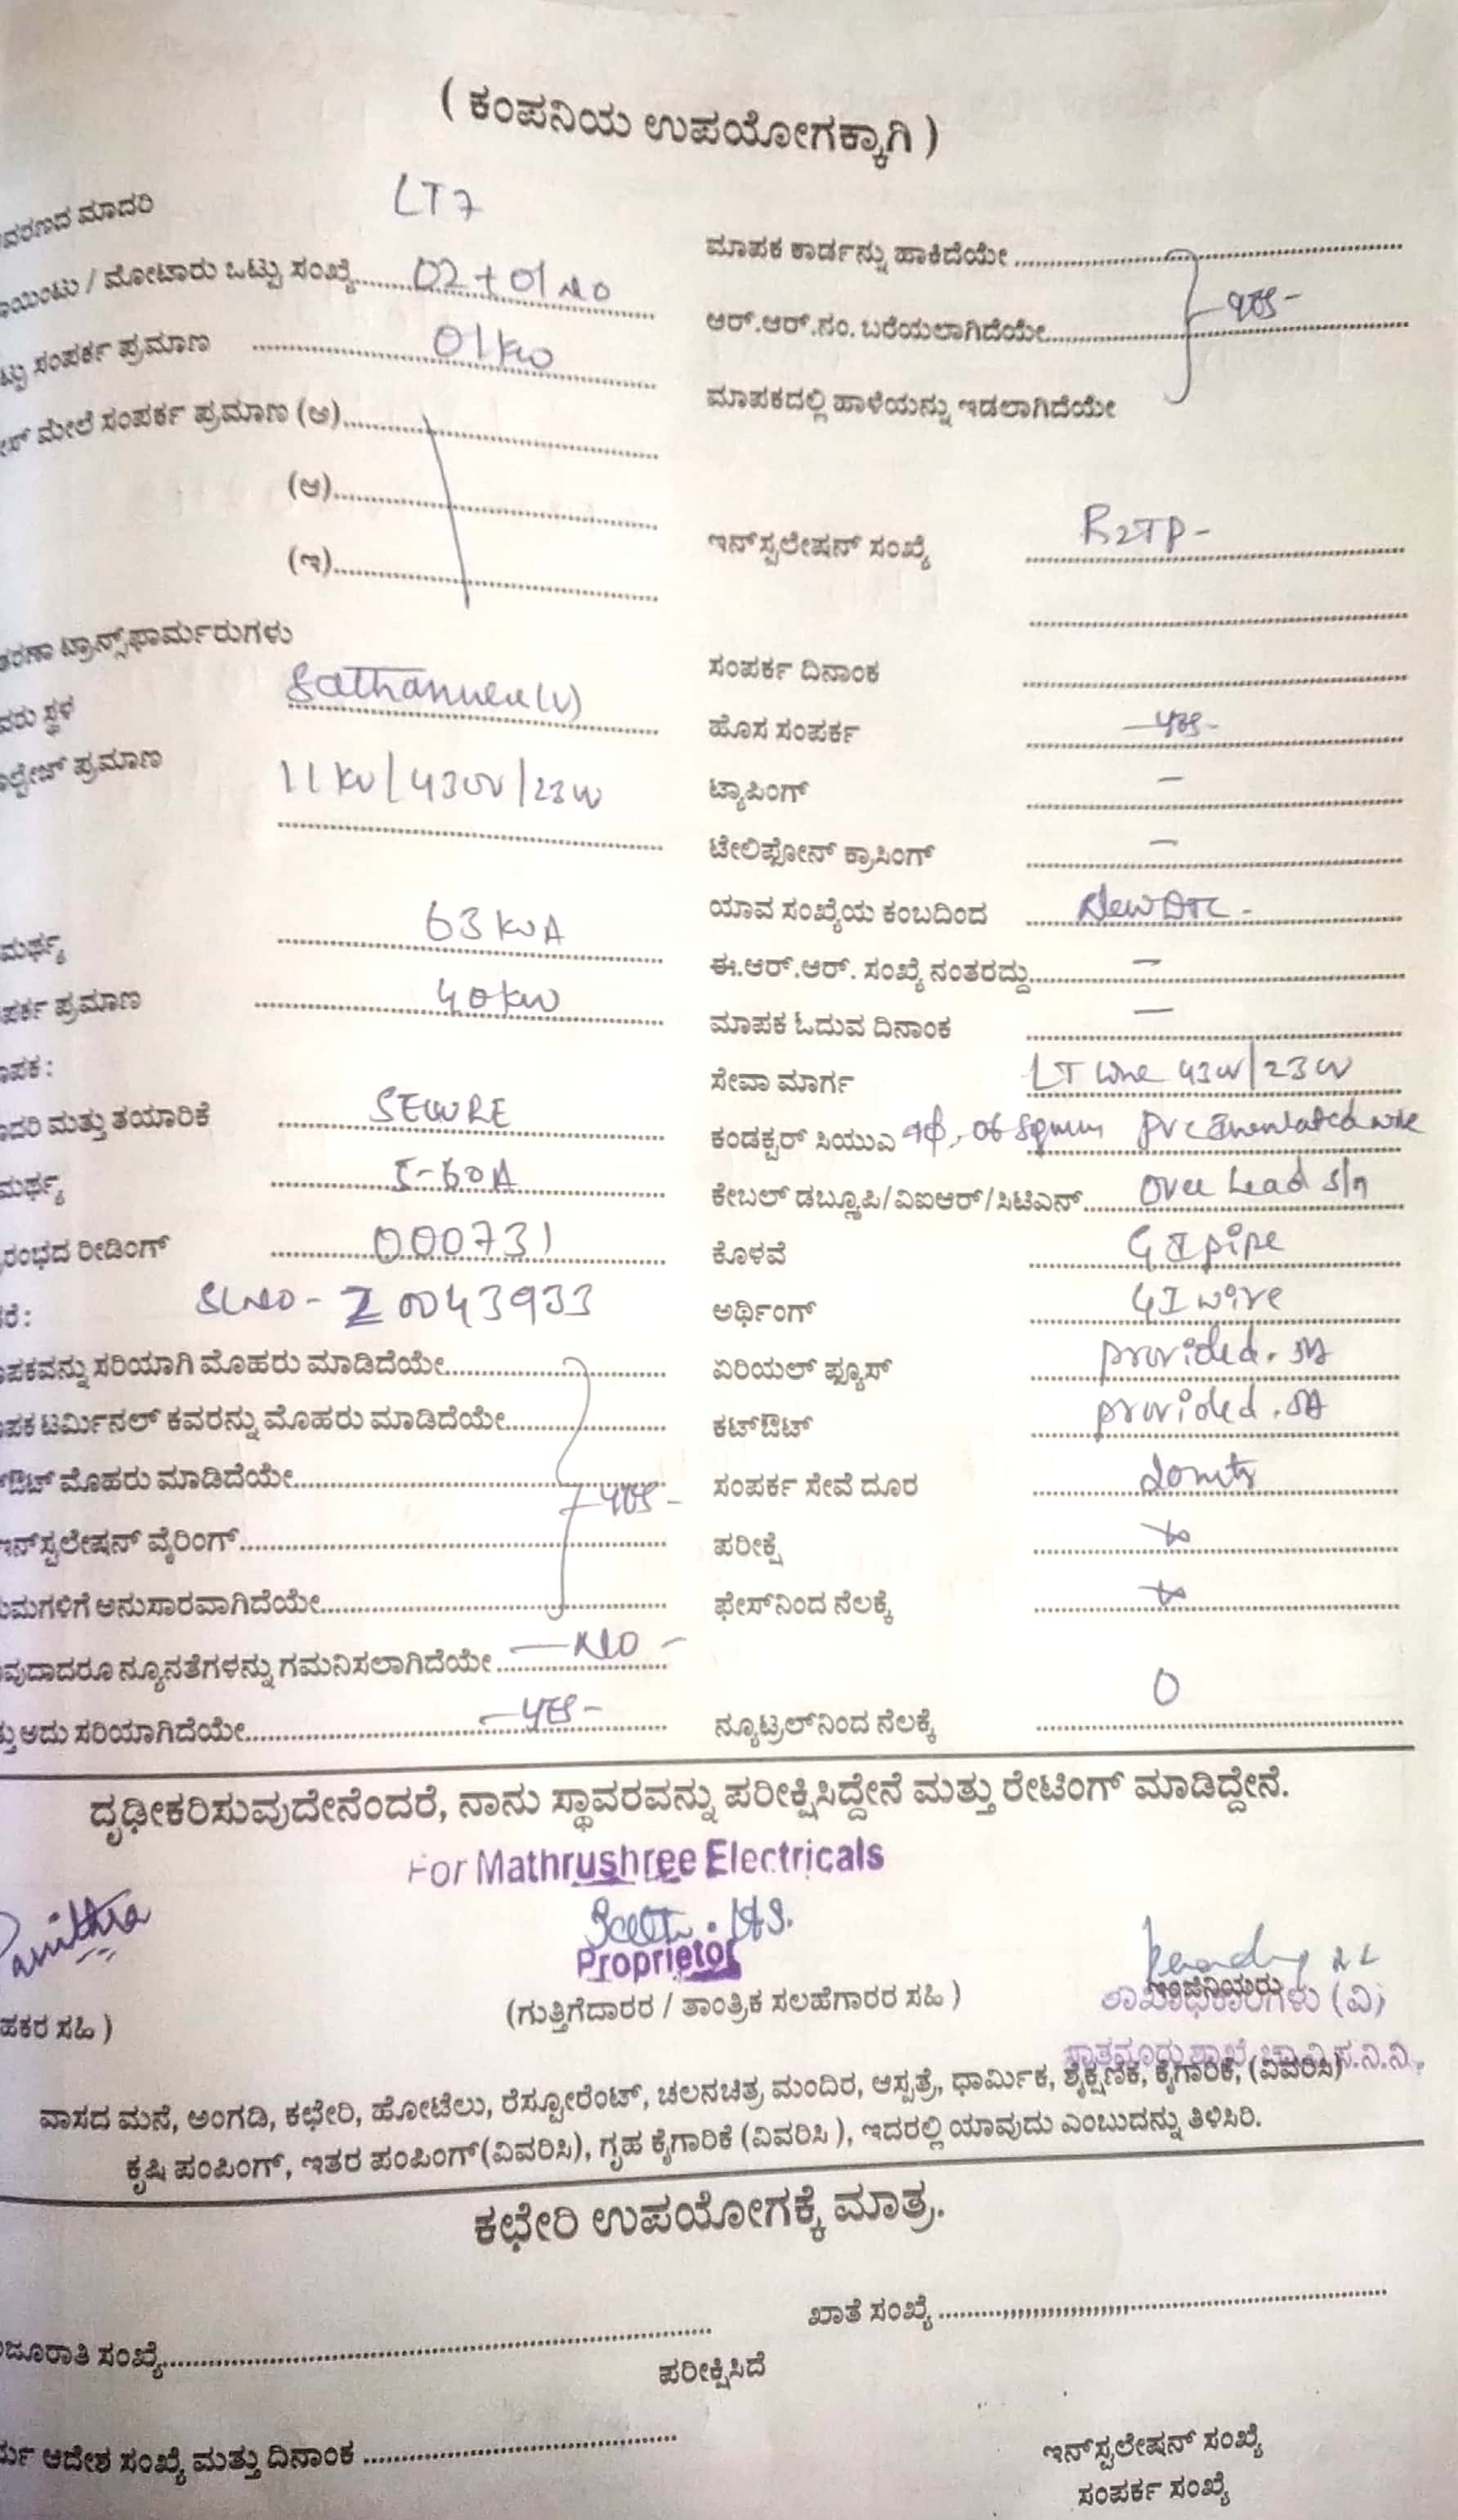 ( ಕಂಪನಿಯ ಉಪಯೋಗಕ್ಕಾಗಿ )
ವರಣದ ಮಾದರಿ LT7
ಾಯಿಂಟು / ಮೋಟಾರು ಒಟ್ಟು ಸಂಖ್ಯೆ 02 + 01 No
ಟ್ಟು ಸಂಪರ್ಕ ಪ್ರಮಾಣ 01 kw
ೇಸ್ ಮೇಲೆ ಸಂಪರ್ಕ ಪ್ರಮಾಣ (ಅ)
(ಆ)
(ಇ)
ತರಣಾ ಟ್ರಾನ್ಸ್‌ಫಾರ್ಮರುಗಳು
ವರು ಸ್ಥಳ Sathanur (V)
ಾಲ್ಟೇಜ್ ಪ್ರಮಾಣ 11 kv / 430v / 230v
ಮರ್ಥ್ಯ 63 kvA
ಪರ್ಕ ಪ್ರಮಾಣ 40 kw
ಾಪಕ :
ಾದರಿ ಮತ್ತು ತಯಾರಿಕೆ SECURE
ಮರ್ಥ್ಯ 5-60A
ರಂಭದ ರೀಡಿಂಗ್ 000731
ರೆ : SLNO - Z0043933
ಾಪಕವನ್ನು ಸರಿಯಾಗಿ ಮೊಹರು ಮಾಡಿದೆಯೇ
ಾಪಕ ಟರ್ಮಿನಲ್ ಕವರನ್ನು ಮೊಹರು ಮಾಡಿದೆಯೇ
ಟ್‌ಔಟ್ ಮೊಹರು ಮಾಡಿದೆಯೇ - yes -
ಇನ್‌ಸ್ಟಲೇಷನ್ ವೈರಿಂಗ್
ಯಮಗಳಿಗೆ ಅನುಸಾರವಾಗಿದೆಯೇ
ವುದಾದರೂ ನ್ಯೂನತೆಗಳನ್ನು ಗಮನಿಸಲಾಗಿದೆಯೇ - NO -
ತ್ತು ಅದು ಸರಿಯಾಗಿದೆಯೇ - yes -
ಮಾಪಕ ಕಾರ್ಡನ್ನು ಹಾಕಿದೆಯೇ
ಆರ್.ಆರ್.ನಂ. ಬರೆಯಲಾಗಿದೆಯೇ - yes -
ಮಾಪಕದಲ್ಲಿ ಹಾಳೆಯನ್ನು ಇಡಲಾಗಿದೆಯೇ
ಇನ್‌ಸ್ಟಲೇಷನ್ ಸಂಖ್ಯೆ
ಸಂಪರ್ಕ ದಿನಾಂಕ
ಹೊಸ ಸಂಪರ್ಕ - yes -
ಟ್ಯಾಪಿಂಗ್ -
ಟೇಲಿಫೋನ್ ಕ್ರಾಸಿಂಗ್ -
ಯಾವ ಸಂಖ್ಯೆಯ ಕಂಬದಿಂದ New DTC -
ಈ.ಆರ್.ಆರ್. ಸಂಖ್ಯೆ ನಂತರದ್ದು -
ಮಾಪಕ ಓದುವ ದಿನಾಂಕ -
ಸೇವಾ ಮಾರ್ಗ LT line 430v / 230v
ಕಂಡಕ್ಟರ್ ಸಿಯುಎ 1φ, 06 sqmm pvc wire
ಕೇಬಲ್ ಡಬ್ಲ್ಯೂಪಿ/ವಿಐಆರ್/ಸಿಟಿಎನ್ Over head
ಕೊಳವೆ GI pipe
ಅರ್ಥಿಂಗ್ GI wire
ಏರಿಯಲ್ ಫ್ಯೂಸ್ provided. 5A
ಕಟ್‌ಔಟ್ provided. 5A
ಸಂಪರ್ಕ ಸೇವೆ ದೂರ 20 mts
ಪರೀಕ್ಷೆ
ಫೇಸ್‌ನಿಂದ ನೆಲಕ್ಕೆ
ನ್ಯೂಟ್ರಲ್‌ನಿಂದ ನೆಲಕ್ಕೆ 0
ದೃಢೀಕರಿಸುವುದೇನೆಂದರೆ, ನಾನು ಸ್ಥಾವರವನ್ನು ಪರೀಕ್ಷಿಸಿದ್ದೇನೆ ಮತ್ತು ರೇಟಿಂಗ್ ಮಾಡಿದ್ದೇನೆ.
For Mathrushree Electricals
Proprietor
ಹಕರ ಸಹಿ )
(ಗುತ್ತಿಗೆದಾರರ / ತಾಂತ್ರಿಕ ಸಲಹೆಗಾರರ ಸಹಿ )
ಇಂಜಿನಿಯರು
ಶಾಖಾಧಿಕಾರಿಗಳು (ವಿ)
ಸಾತನೂರು ಶಾಖೆ, ಚಾ.ವಿ.ಸ.ನಿ.ನಿ.,
ವಾಸದ ಮನೆ, ಅಂಗಡಿ, ಕಛೇರಿ, ಹೋಟೆಲು, ರೆಸ್ಟೋರೆಂಟ್, ಚಲನಚಿತ್ರ ಮಂದಿರ, ಆಸ್ಪತ್ರೆ, ಧಾರ್ಮಿಕ, ಶೈಕ್ಷಣಿಕ, ಕೈಗಾರಿಕೆ, (ವಿವರಿಸಿ)
ಕೃಷಿ ಪಂಪಿಂಗ್, ಇತರ ಪಂಪಿಂಗ್(ವಿವರಿಸಿ), ಗೃಹ ಕೈಗಾರಿಕೆ (ವಿವರಿಸಿ ), ಇದರಲ್ಲಿ ಯಾವುದು ಎಂಬುದನ್ನು ತಿಳಿಸಿರಿ.
ಕಛೇರಿ ಉಪಯೋಗಕ್ಕೆ ಮಾತ್ರ.
ಜೂರಾತಿ ಸಂಖ್ಯೆ
ಖಾತೆ ಸಂಖ್ಯೆ
ಪರೀಕ್ಷಿಸಿದೆ
ರ್ಯ ಆದೇಶ ಸಂಖ್ಯೆ ಮತ್ತು ದಿನಾಂಕ
ಇನ್‌ಸ್ಟಲೇಷನ್ ಸಂಖ್ಯೆ
ಸಂಪರ್ಕ ಸಂಖ್ಯೆ